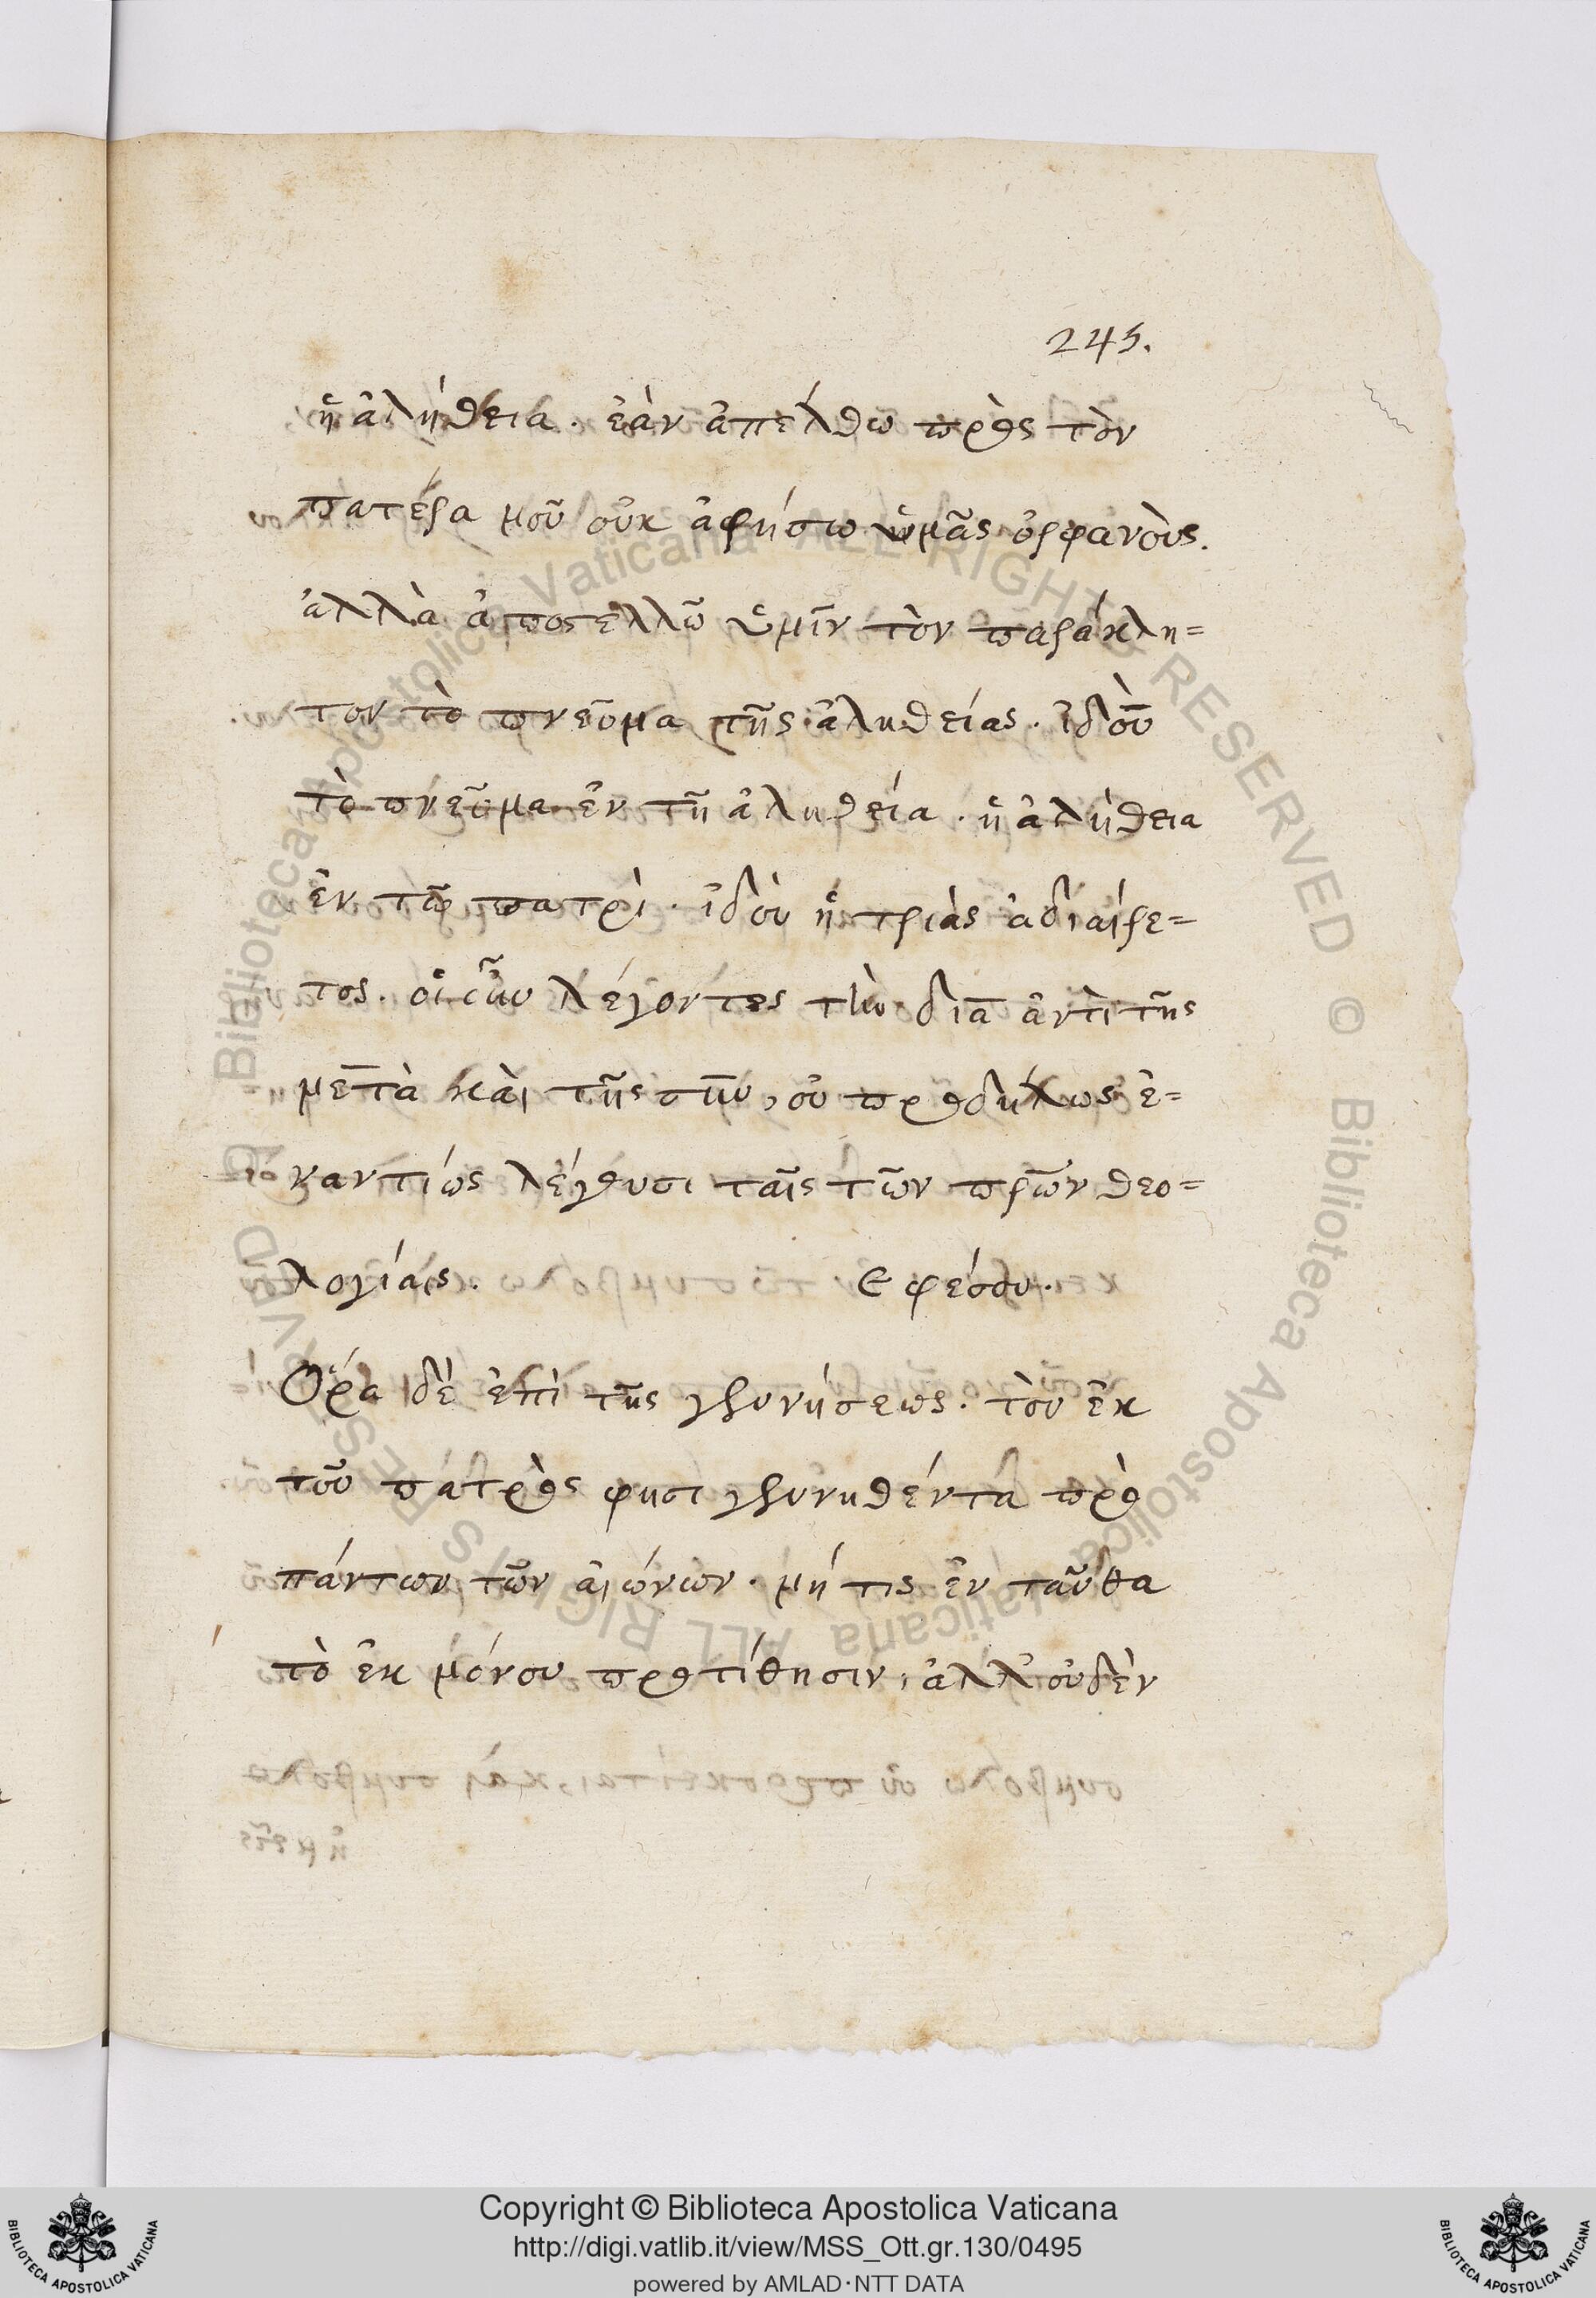 245.
ἡ ἀλήθεια. ἐὰν ἀπέλθω πρὸς τὸν
πατέρα μοῦ οὐκ ἀφήσω ὑμᾶς ὀρφανοὺς.
ἀλλὰ ἀποστέλλῶ ὑμῖν τὸν παράκλη=
τον τὸ πνεῦμα τῆς ἀληθείας. ἰδοὺ
τὸ πνεῦμα ἐν τῆ ἀληθεία. ἡ ἀλήθεια
ἐν τῶ πατρὶ. ἰδοὺ ἡ τριὰς ἀδιαίρε=
τος. οἱ οὖν λέγοντες τὴν διὰ ἀντὶ τῆς
μετὰ καὶ τῆς σὺν, οὐ προδήλως ἐ=
ναντίως λέγουσι ταῖς τῶν πρων θεο=
λογίαις. Εφέσου.
Ὅρα δὲ ἐπὶ τῆς γεννήσεως. τὸν ἐκ
τοῦ πατρὸς φησι γεννηθέντα πρὸ
πάντων τῶν αἰώνων. μή τις ἐν ταῦθα
τὸ ἐκ μόνου προτίθησιν, ἀλλ' οὐδὲν
Copyright © Biblioteca Apostolica Vaticana
http://digi.vatlib.it/view/MSS_Ott.gr.130/0495
powered by AMLAD·NTT DATA
BIBLIOTECA APOSTOLICA VATICANA
BIBLIOTECA APOSTOLICA VATICANA
© Biblioteca Apostolica Vaticana ALL RIGHTS RESERVED © Biblioteca Apostolica Vaticana ALL RIGHTS RESERVED